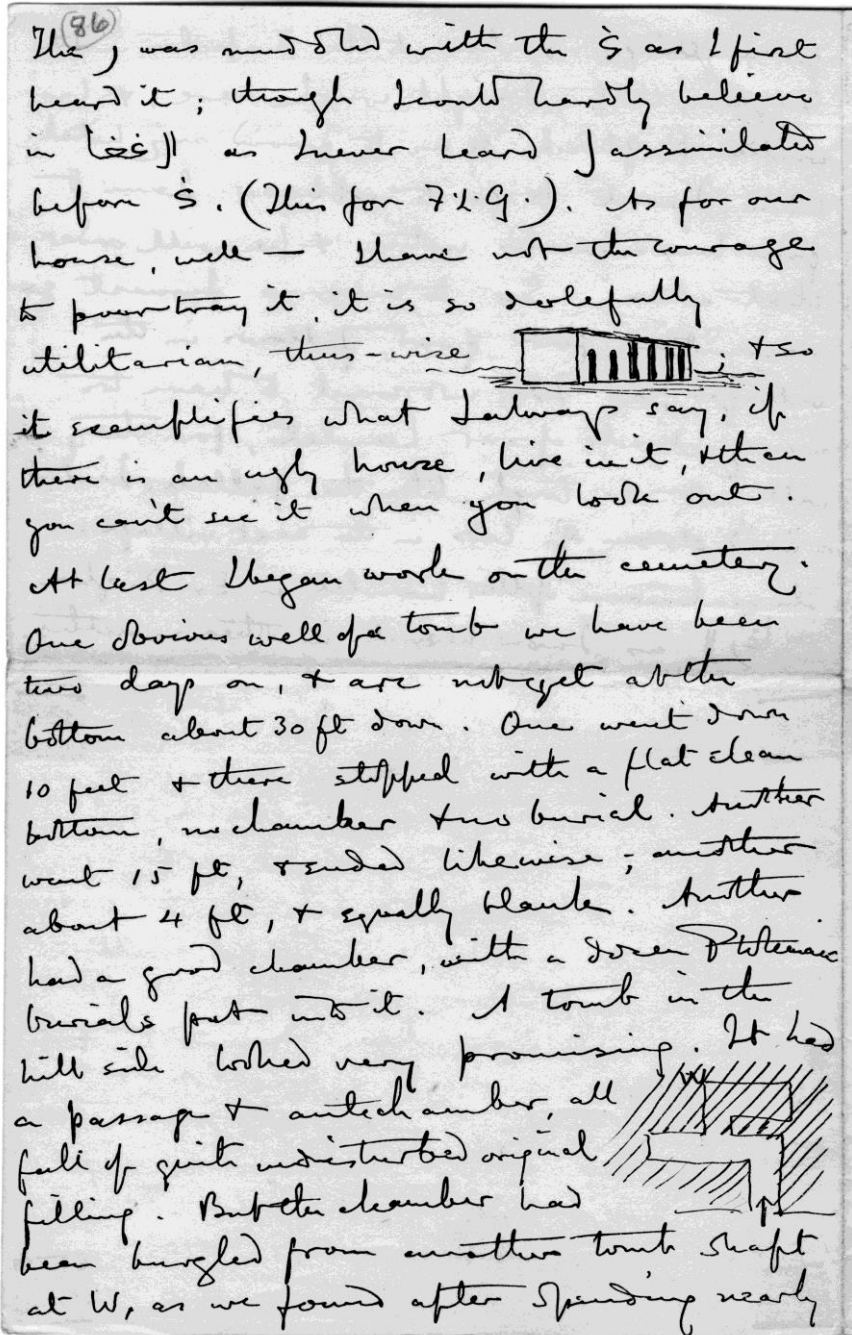 (86)
The ر was muddled with the غ as I first
heard it; though I could hardly believe
in الغضا as I never heard ل assimilated
before غ. (This for F.L.G.). As for our
house, well — I have not the courage
to pourtray it, it is so dolefully
utilitarian, thus-wise ; & so
it exemplifies what I always say, if
there is an ugly house, live in it, & then
you can't see it when you look out.
At last I began work on the cemetery.
One obvious well of a tomb we have been
two days on, & are not yet at the
bottom about 30 ft down. One went down
10 feet & there stopped with a flat clean
bottom, no chamber & no burial. Another
went 15 ft, & ended likewise; another
about 4 ft, & equally blank. Another
had a good chamber, with a dozen Ptolemaic
burials put into it. A tomb in the
hill side looked very promising. It had
a passage & antechamber, all
W
full of quite undisturbed original
filling. But the chamber had
been burgled from another tomb shaft
at W, as we found after spending nearly